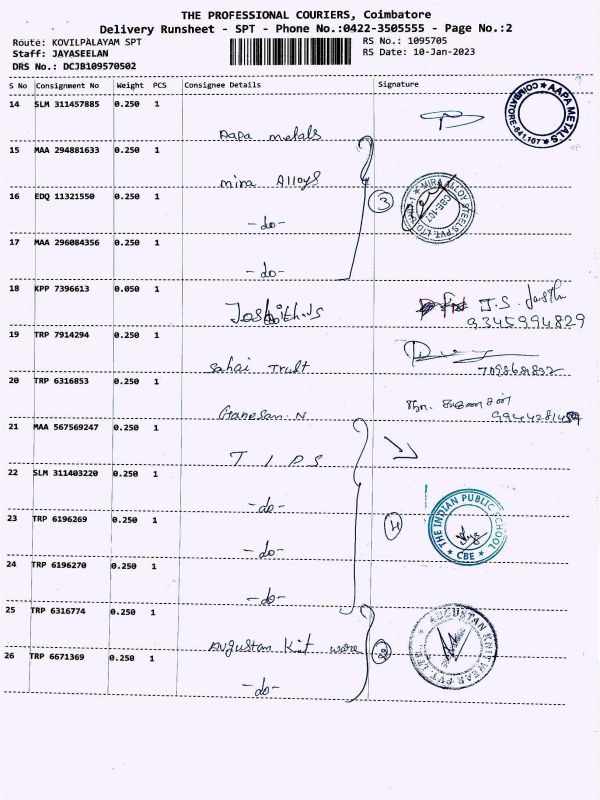 THE PROFESSIONAL COURIERS, Coimbatore
Delivery Runsheet - SPT - Phone No.:0422-3505555 - Page No.:2
Route: KOVILPALAYAM SPT
Staff: JAYASEELAN
DRS No.: DCJB109570502
RS No.: 1095705
RS Date: 10-Jan-2023
S No Consignment No Weight PCS Consignee Details Signature
14 SLM 311457885 0.250 1
Aapa metals
AAPA METALS ★ COIMBATORE-641.107 ★
15 MAA 294881633 0.250 1
mira Alloys
16 EDQ 11321550 0.250 1
-do-
3
MIRA ALLOY STEELS PVT. LTD
CBE-107
17 MAA 296084356 0.250 1
-do-
18 KPP 7396613 0.050 1
J.S.
9345994829
19 TRP 7914294 0.250 1
Sahai Trust
20 TRP 6316853 0.250 1
Ganesan. N
21 MAA 567569247 0.250 1
T I P S
22 SLM 311403220 0.250 1
-do-
23 TRP 6196269 0.250 1
-do-
4
THE INDIAN PUBLIC SCHOOL
★ CBE ★
24 TRP 6196270 0.250 1
-do-
25 TRP 6316774 0.250 1
Augustan Knit ware
AUGUSTAN KNITWEAR PVT. LTD.
26 TRP 6671369 0.250 1
-do-